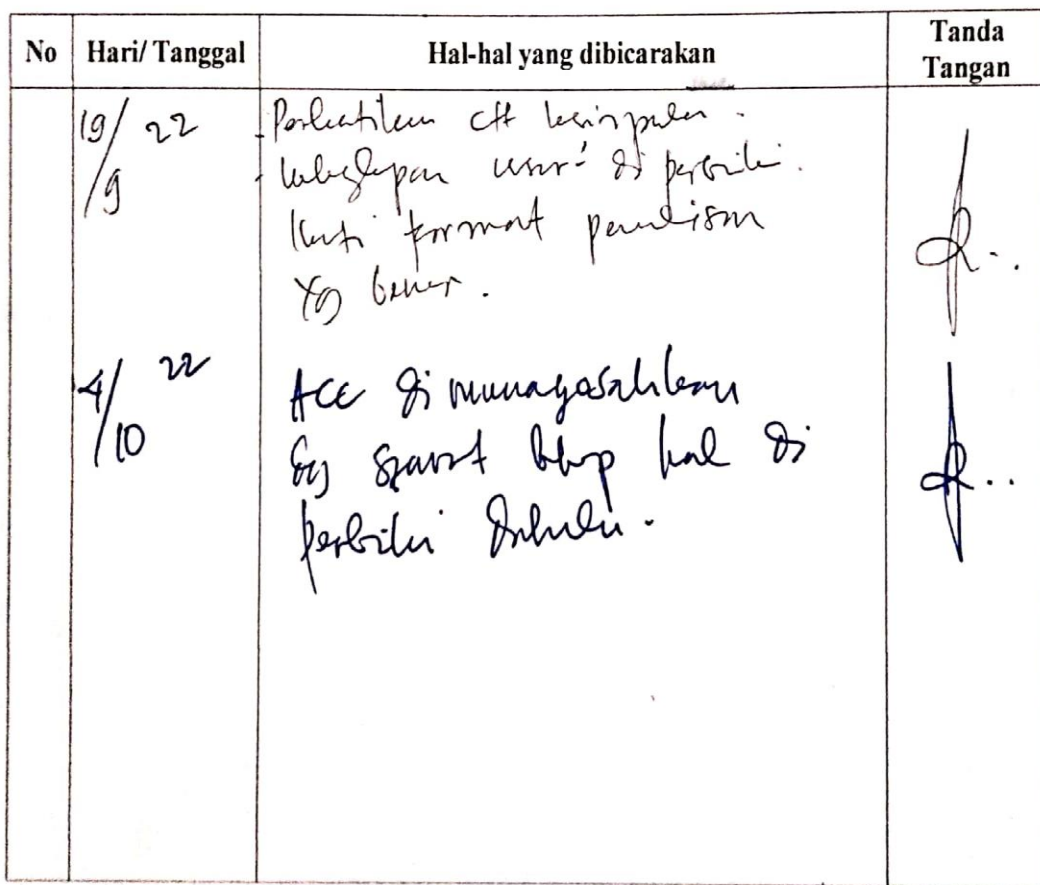 No Hari/ Tanggal Hal-hal yang dibicarakan Tanda Tangan
19/9 22 - Perhatikan ctt kesimpulan.
- kelengkapan unsur² di perbaiki.
Ikuti format penulisan
Yg benar.
4/10 22 ACC di munaqasahkan
dg syarat bbrp hal di
perbaiki dahulu.